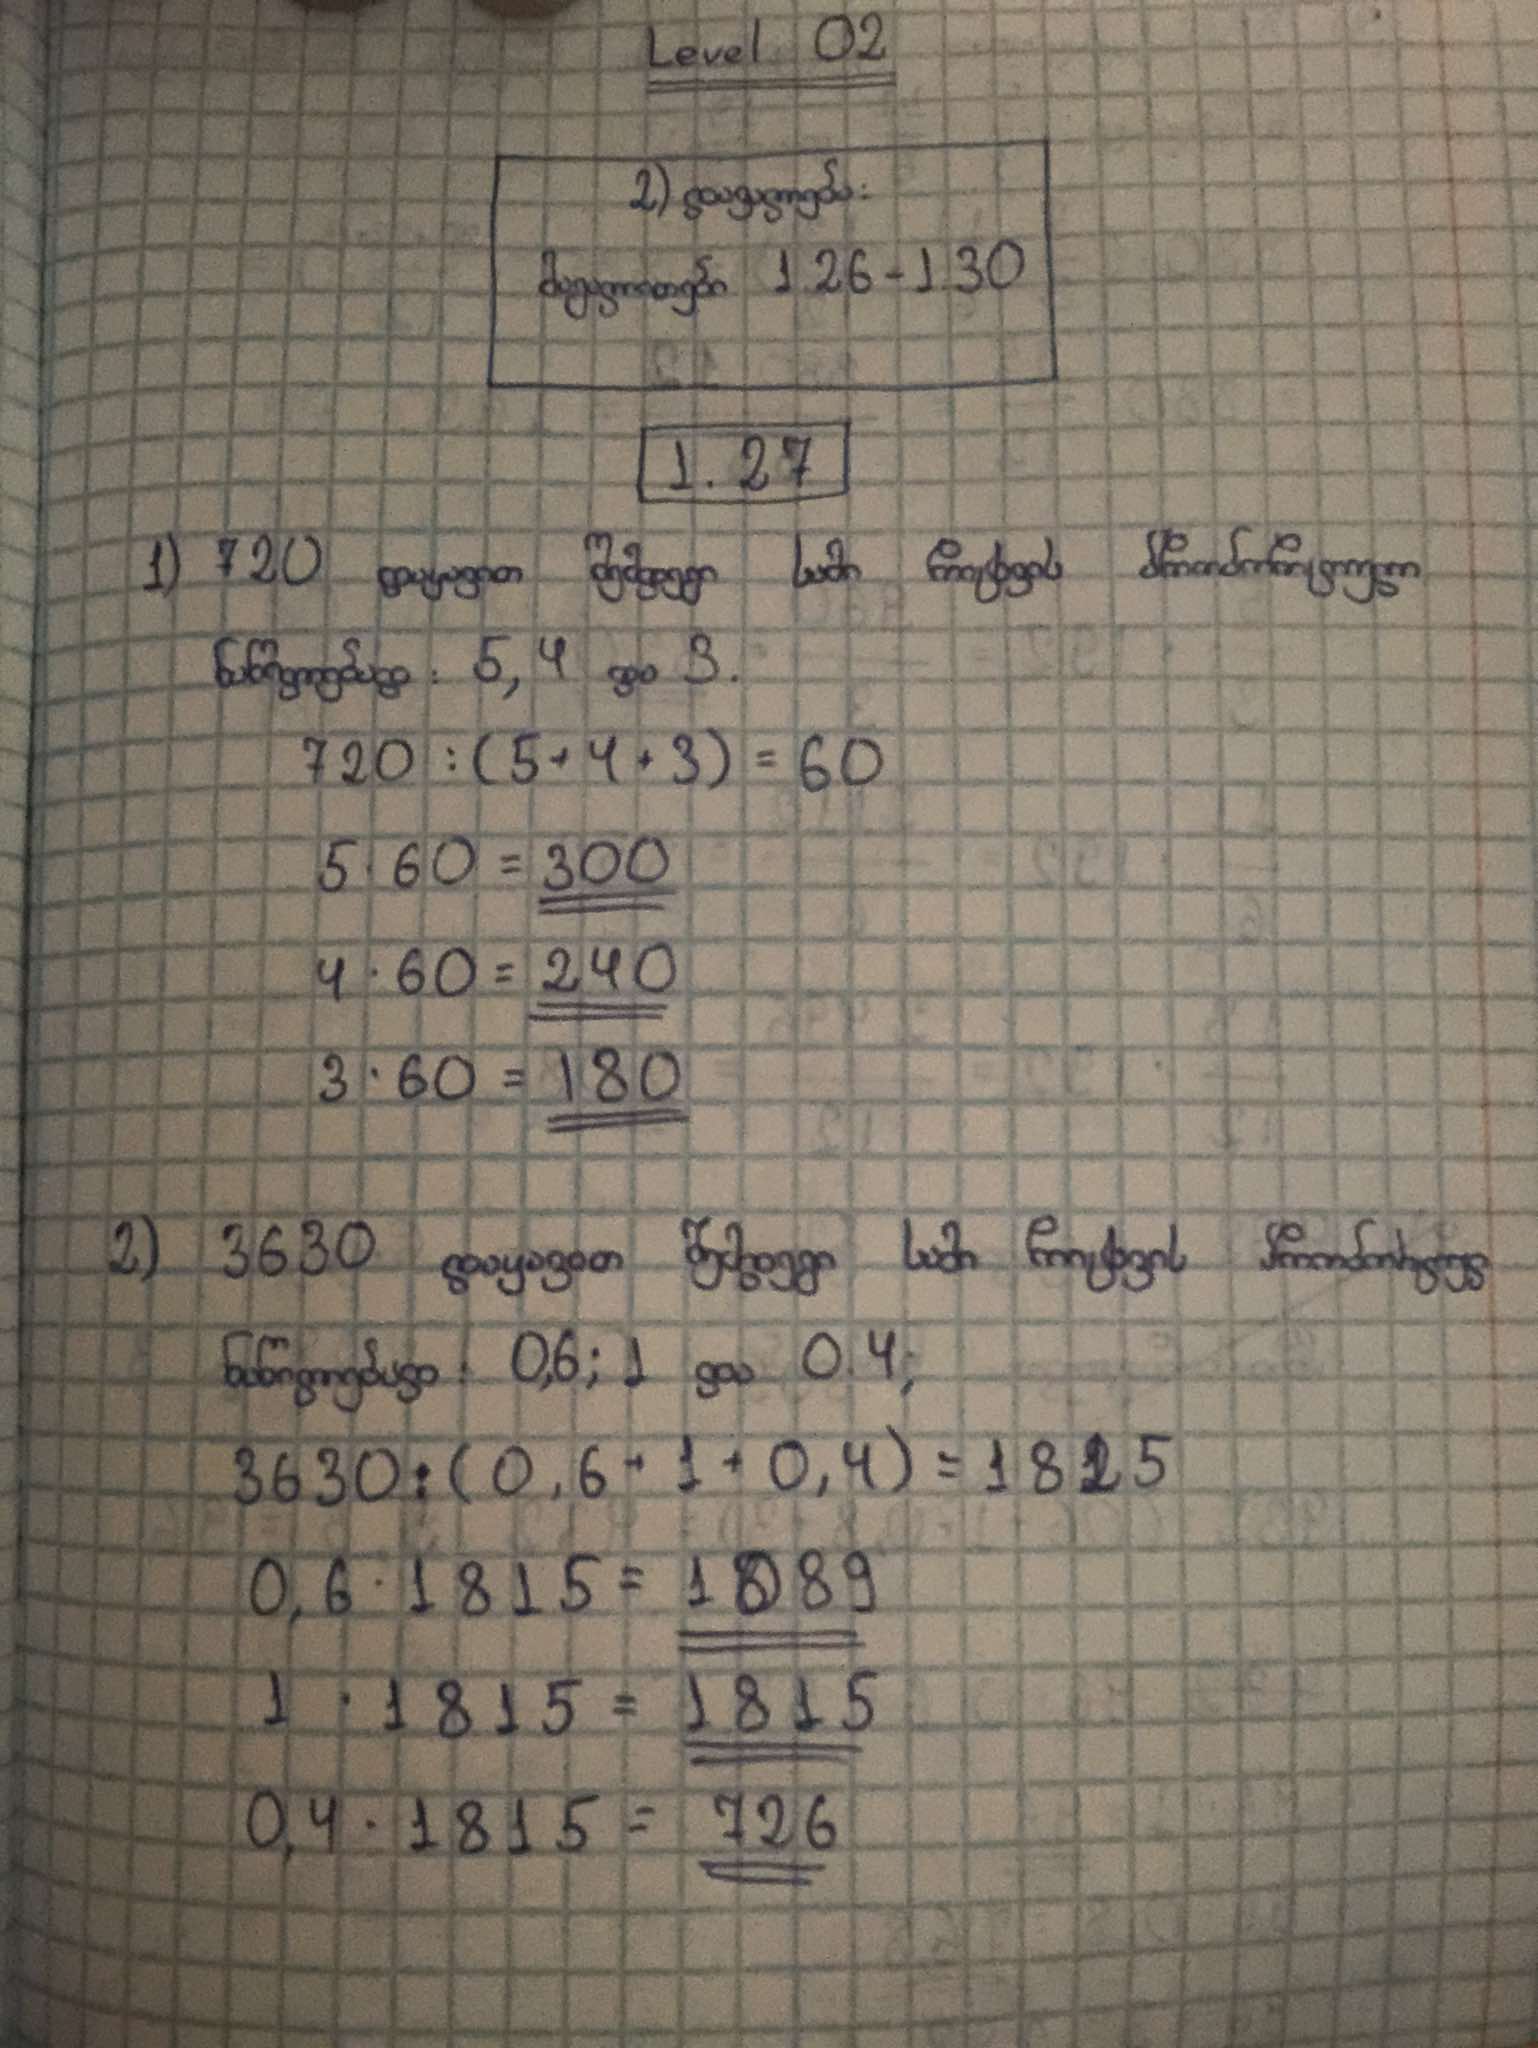 Level 02
2) დავალება:
მაგალითები 126-130
1.27
1) 720 დაყავით შემდეგი სამი რიცხვის პროპორციულ
ნაწილებად: 5, 4 და 3.
720 : (5+4+3) = 60
5·60 = 300
4·60 = 240
3·60 = 180
2) 3630 დაყავით შემდეგი სამი რიცხვის
ნაწილებად: 0,6; 1 და 0.4;
3630:(0,6+1+0,4)=1815
0,6·1815= 1089
1·1815= 1815
0,4·1815= 726